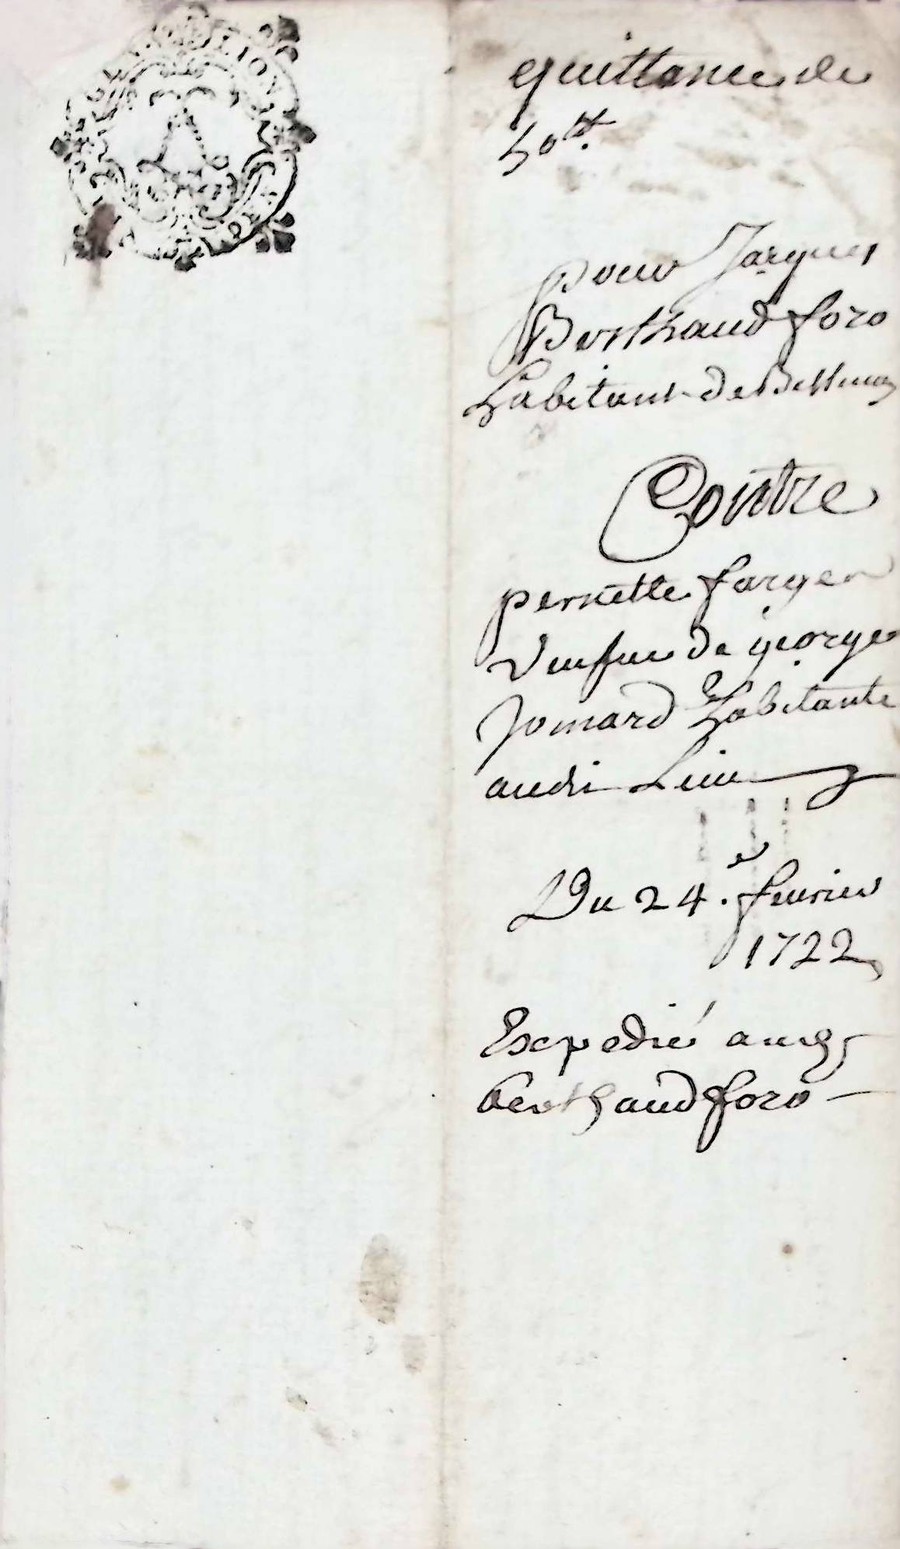 quittance de
50lt.
pour Jacques
Berthaud foro
habitant de Bessenay
Contre
pernette farge
veufue de george
Jomard habitante
audi Lieu
Du 24.e feurier
1722
Expedié audi
berthaud foro